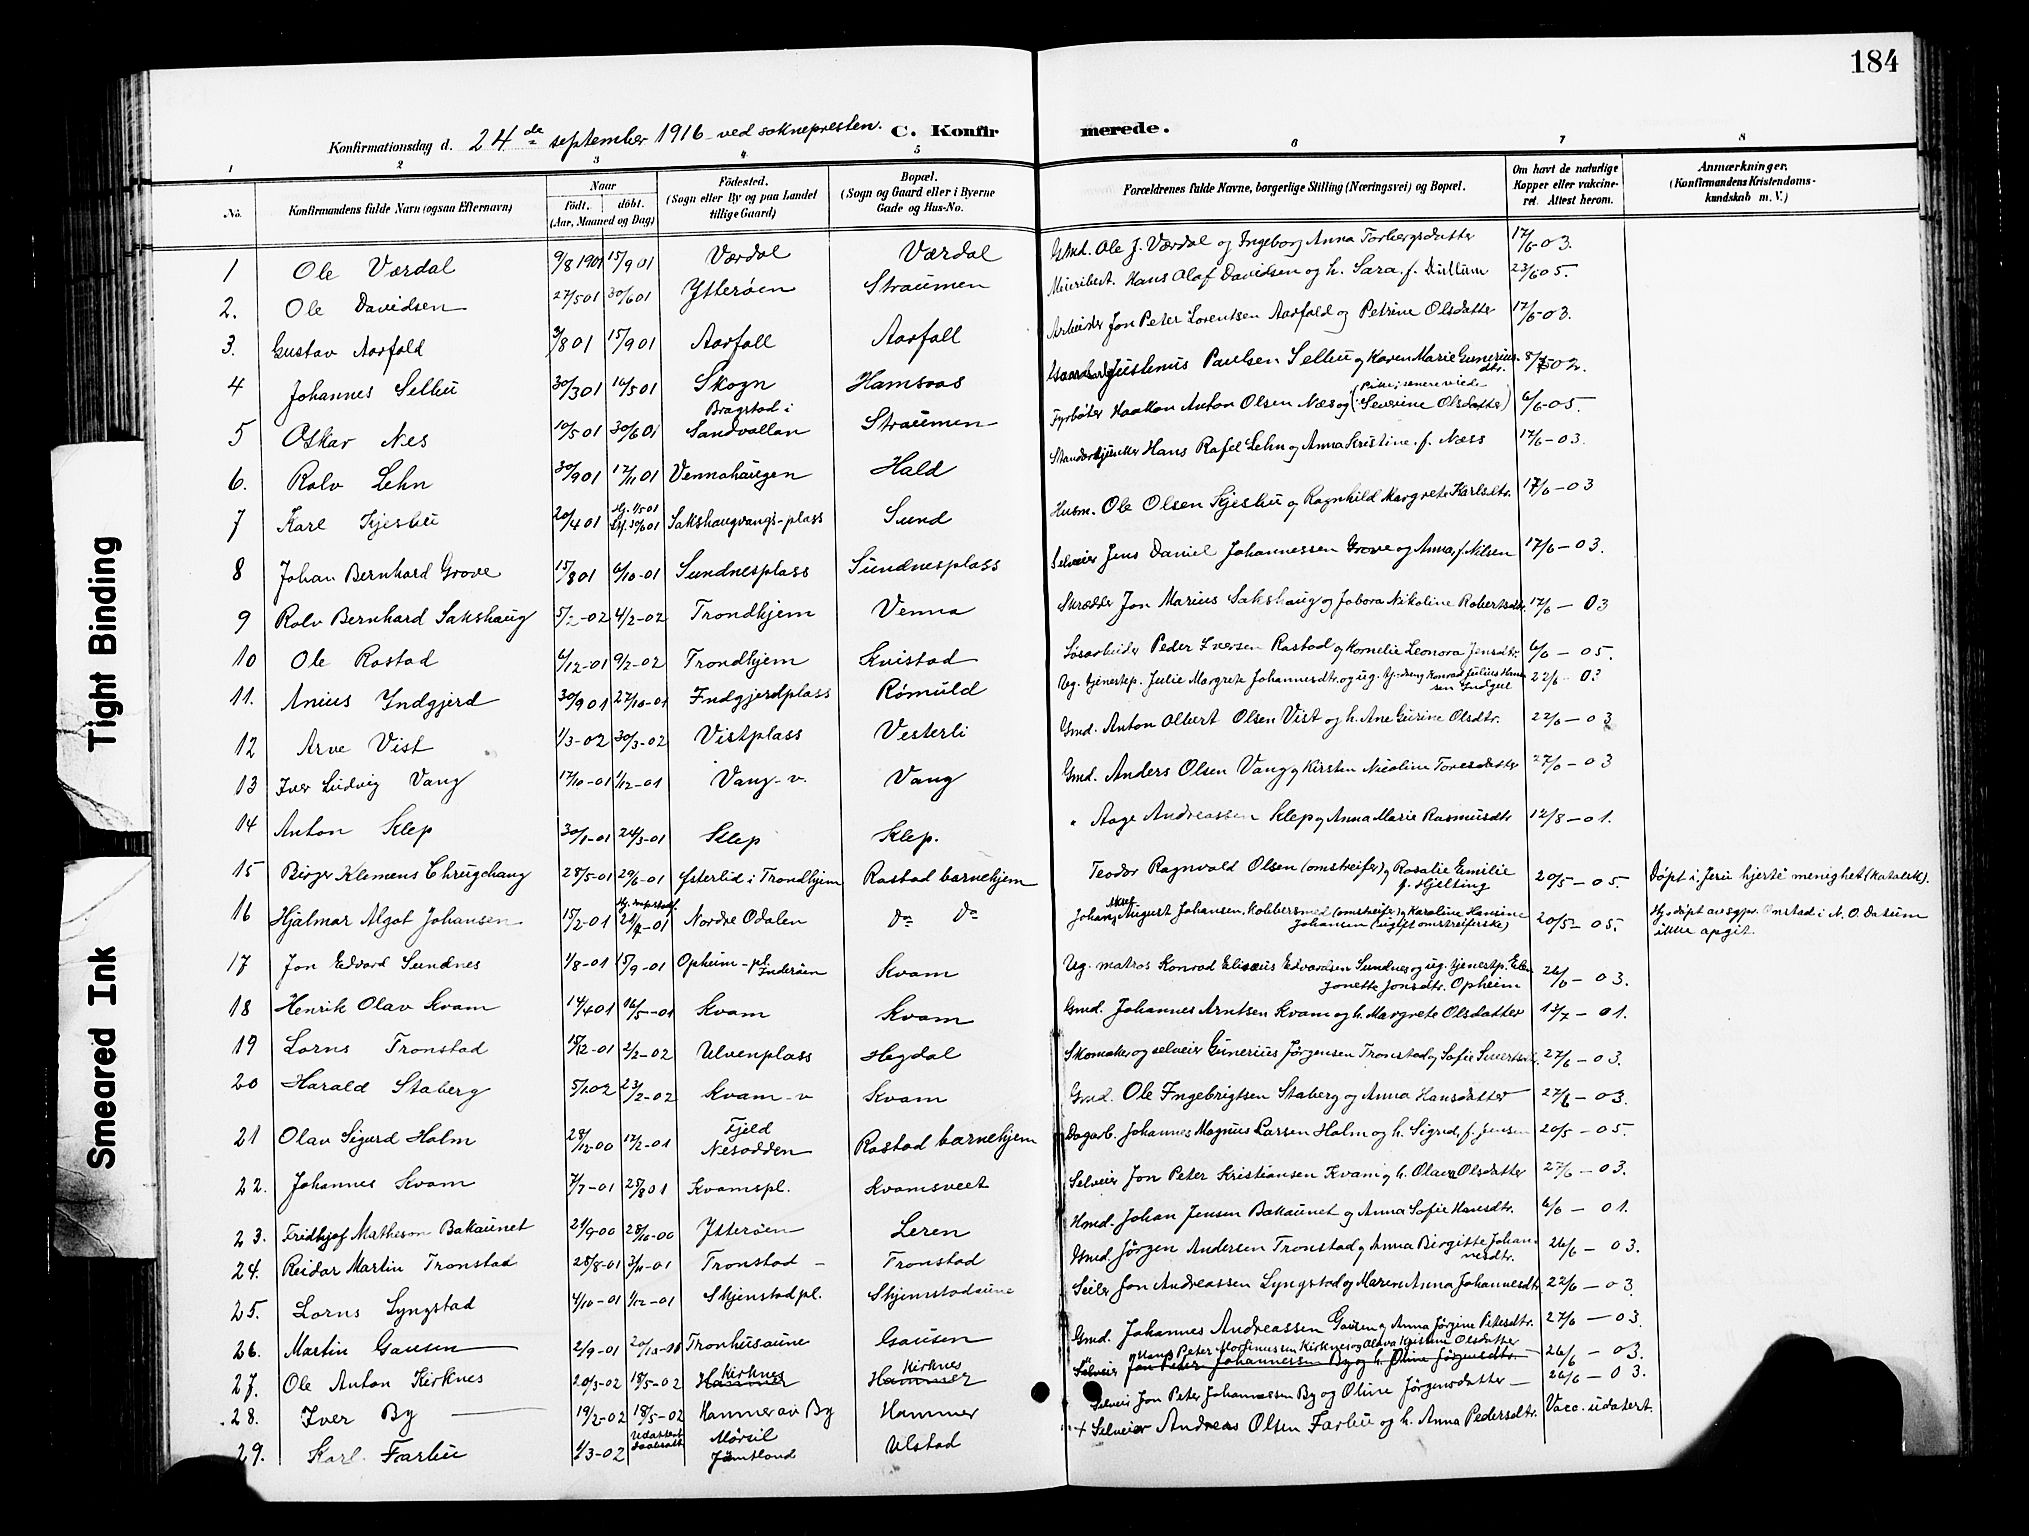 184
Konfirmationsdag d. 24de september 1916 ved soknepresten. C. Konfirmerede.
1 2 3 4 5 6 7 8
No. Konfirmandens fulde Navn (ogsaa Efternavn) Naar födt. döbt. (Aar, Maaned og Dag) Födested. (Sogn eller By og paa Landet tillige Gaard) Bopæl. (Sogn og Gaard eller i Byerne Gade og Hus-No. Forældrenes fulde Navne, borgerlige Stilling (Næringsvei) og Bopæl. Om havt de naturlige Kopper eller vaccineret. Attest herom. Anmærkninger. (Konfirmandens Kristendomskundskab m. V.)
1 Ole Værdal 9/8 1901 15/9 01 Værdal Værdal Gmd. Ole J. Værdal og Ingeborg Anna Torbergsdatter 17/6-03.
2. Ole Davidsen 27/5 01 30/6 01 Ytterøen Straumen Meieribest. Hans Olaf Davidsen og h. Sara f. Dullum 23/6 05.
3. Gustav Aarfald 3/8 01 15/9 01 Aarfall Aarfall Arbeider Jon Peter Lorentsen Aarfald og Petrine Olsdatter 17/6-03.
4 Johannes Selliu 30/3 01 16/5 01 Skogn Hamsvas Justinus Paulsen Selliu og Karen Marie Gunerius-dtr. 02.
5 Oskar Nes 10/5 01 30/6 01 Bragstad i Sandvollan Straumen Fyrbøter Haakon Anton Olsen Næs og (Pike, senere viede Severine Olsdatter) 6/6-05.
6. Rolv Lehn 30/9 01 17/11 01 Vennahaugen Hald Standartjunker Hans Rafel Lehn og Anna Kristine f. Næss 17/6-03.
7 Karl Skjesliu 20/4 01 30/6 01 Sakshaugvangs-plass Sund Husm. Ole Olsen Skjesliu og Ragnhild Margrete Karlsdtr. 17/6-03
8 Johan Bernhard Grove 15/8 01 6/10-01 Sundnesplass Sundnesplass Selveier Jens Daniel Johannessen Grove og Anna f. Nilsen 17/6-03.
9 Rolv Bernhard Sakshaug 4/2-02 Trondhjem Venna Skrædder Jon Marius Sakshaug og Jobora Nikoline Robertsdtr. 17/6-03
10 Ole Rostad 6/12-01 9/2-02 Trondhjem Kvistad Løsarbeider Peder Iversen Rostad og Kornelie Leonora Jensdtr. 6/6-05.
11. Anius Indgjerd 30/9 01 27/10-01 Indgjerdplass Rømuld Ug. tjenestep. Julie Margrete Johannesdtr. og ug. tj.dreng Konrad Julius Hansen Indgjer 22/6-03
12 Arve Vist 1/3-02 30/3-02 Vistplass Vesterli Gmd. Anton Albert Olsen Vist og h. Ane Gurine Olsdtr. 22/6-03
13 Iver Ludvig Vang 17/10-01 1/12-01 Vang-v. Vang Gmd. Anders Olsen Vang og Kirsten Nicoline Toresdatter 27/6-03
14 Anton Klep 30/1-01 24/3-01 Klep Klep. " Aage Andreassen Klep og Anna Marie Rasmusdtr 12/8-01.
15 Birger Klemens Chrugchang 28/5-01 29/6-01 Ysterlid i Trondhjem Rostad barnehjem Teodor Ragnvald Olsen (omstreifer) og Rosalie Emilie f. Hjelting 20/5-05. Døpt i Jesu hjerte menighet (Katolik).
16 Hjalmar Algot Johansen 15/2-01 24/4-01 Nordre Odalen do do Johan August Johansen, Kobbersmed (omstreifer) og Karoline Hansine Johansen (ugift omstreiferske) 20/5-05. Hj.døpt av sgpr. Onstad i N. O. Datum ikke opgit.
17 Jon Edvard Sundnes 1/8-01 15/9-01 Opheim-pl. Inderøen Kvam Ug. matros Konrad Elisæus Edvardsen Sundnes og ug. tjenestp. Elen Jonette Jonsdtr. Opheim 26/6-03.
18 Henrik Olav Kvam 14/4 01 16/5-01 Kvam Kvam Gmd. Johannes Arntsen Kvam og h. Margrete Olsdatter 17/7-01.
19 Lorns Tronstad 15/12-01 2/2-02 Ulvenplass Hegdal Skomaker og selveier Gunerius Jørgensen Tronstad og Sofie Sivertsdtr. 27/6-03.
20 Harald Staberg 5/1 02 23/2-02 Kvam-v Kvam Gmd. Ole Ingebrigtsen Staberg og Anna Hansdatter 27/6-03.
21 Olav Sigurd Holm 28/12-00 17/2-01 Fjeld Nesodden Rostad barnehjem Dagarb. Johannes Magnus Larsen Holm og h. Signe, f. Jensen 20/5-05.
22. Johannes Kvam 7/7-01 25/8 01 Kvamspl. Kvamsveet Selveier Jon Peter Kristiansen Kvam og h. Olava Olsdatter 27/6-03.
23. Fridtjof Matheson Bakaunet 21/9-00 28/10-00 Ytterøen Leren Hmd. Johan Jensen Bakaunet og Anna Sofie Hansdtr. 6/6-01.
24. Reidar Martin Tronstad 28/8-01 3/11-01 Tronstad Tronstad Gmd. Jørgen Andersen Tronstad og Anna Birgitte Johannesdtr. 26/6-03.
25. Lorns Lyngstad 4/10-01 1/12-01 Skjenstad pl. Skjemstadaune Seiler Jon Andreassen Lyngstad og Maren Anna Johannesdtr 22/6-03.
26. Martin Gausen 2/9-01 20/10-01 Tronhusaune Gausen Gmd. Johannes Andreassen Gausen og Anna Jørgine Petersdtr. 27/6-03.
27. Ole Anton Kirknes 20/3-02 18/5-02 Kirknes Hammer Kirknes Hammer Hans Peter Martinussen Kirknes og Olava Kristine Olsdatter Selveier Jon Peter Johannessen By og h. Oline Jørgensdtr. 26/6-03.
28. Iver By 19/2-02 18/5-02 Hammer av By Hammer Selveier Jon Peter Johannessen By og Oline Jørgensdatter 26/6-03.
29. Karl Farliu 1/3-02 Udatert daabsatt. Mörsil Jämtland Ulstad + Selveier Andreas Olsen Farliu og h. Anna Pedersdtr. Vacc. udatert.
Tight Binding
Smeared Ink